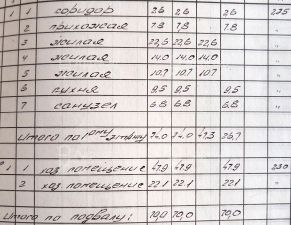 1 1 коридор 2,6 2,6 2,6 225
2 прихожая 7.8 7.8 7.8
3 жилая 22,6 22,6 22,6
4 жилая 14.0 14.0 14.0
5 жилая 10.7 10.7 10.7
6 кухня 9,5 9,5 9,5
7 санузел 6.8 6.8 6.8
Итого по 1ому этажу 74.0 74.0 47.3 26,7
1 1 хоз помещение 47.9 47.9 47.9 230
2 хоз помещение 22.1 22.1 22.1
Итого по подвалу: 70,0 70,0 70,0